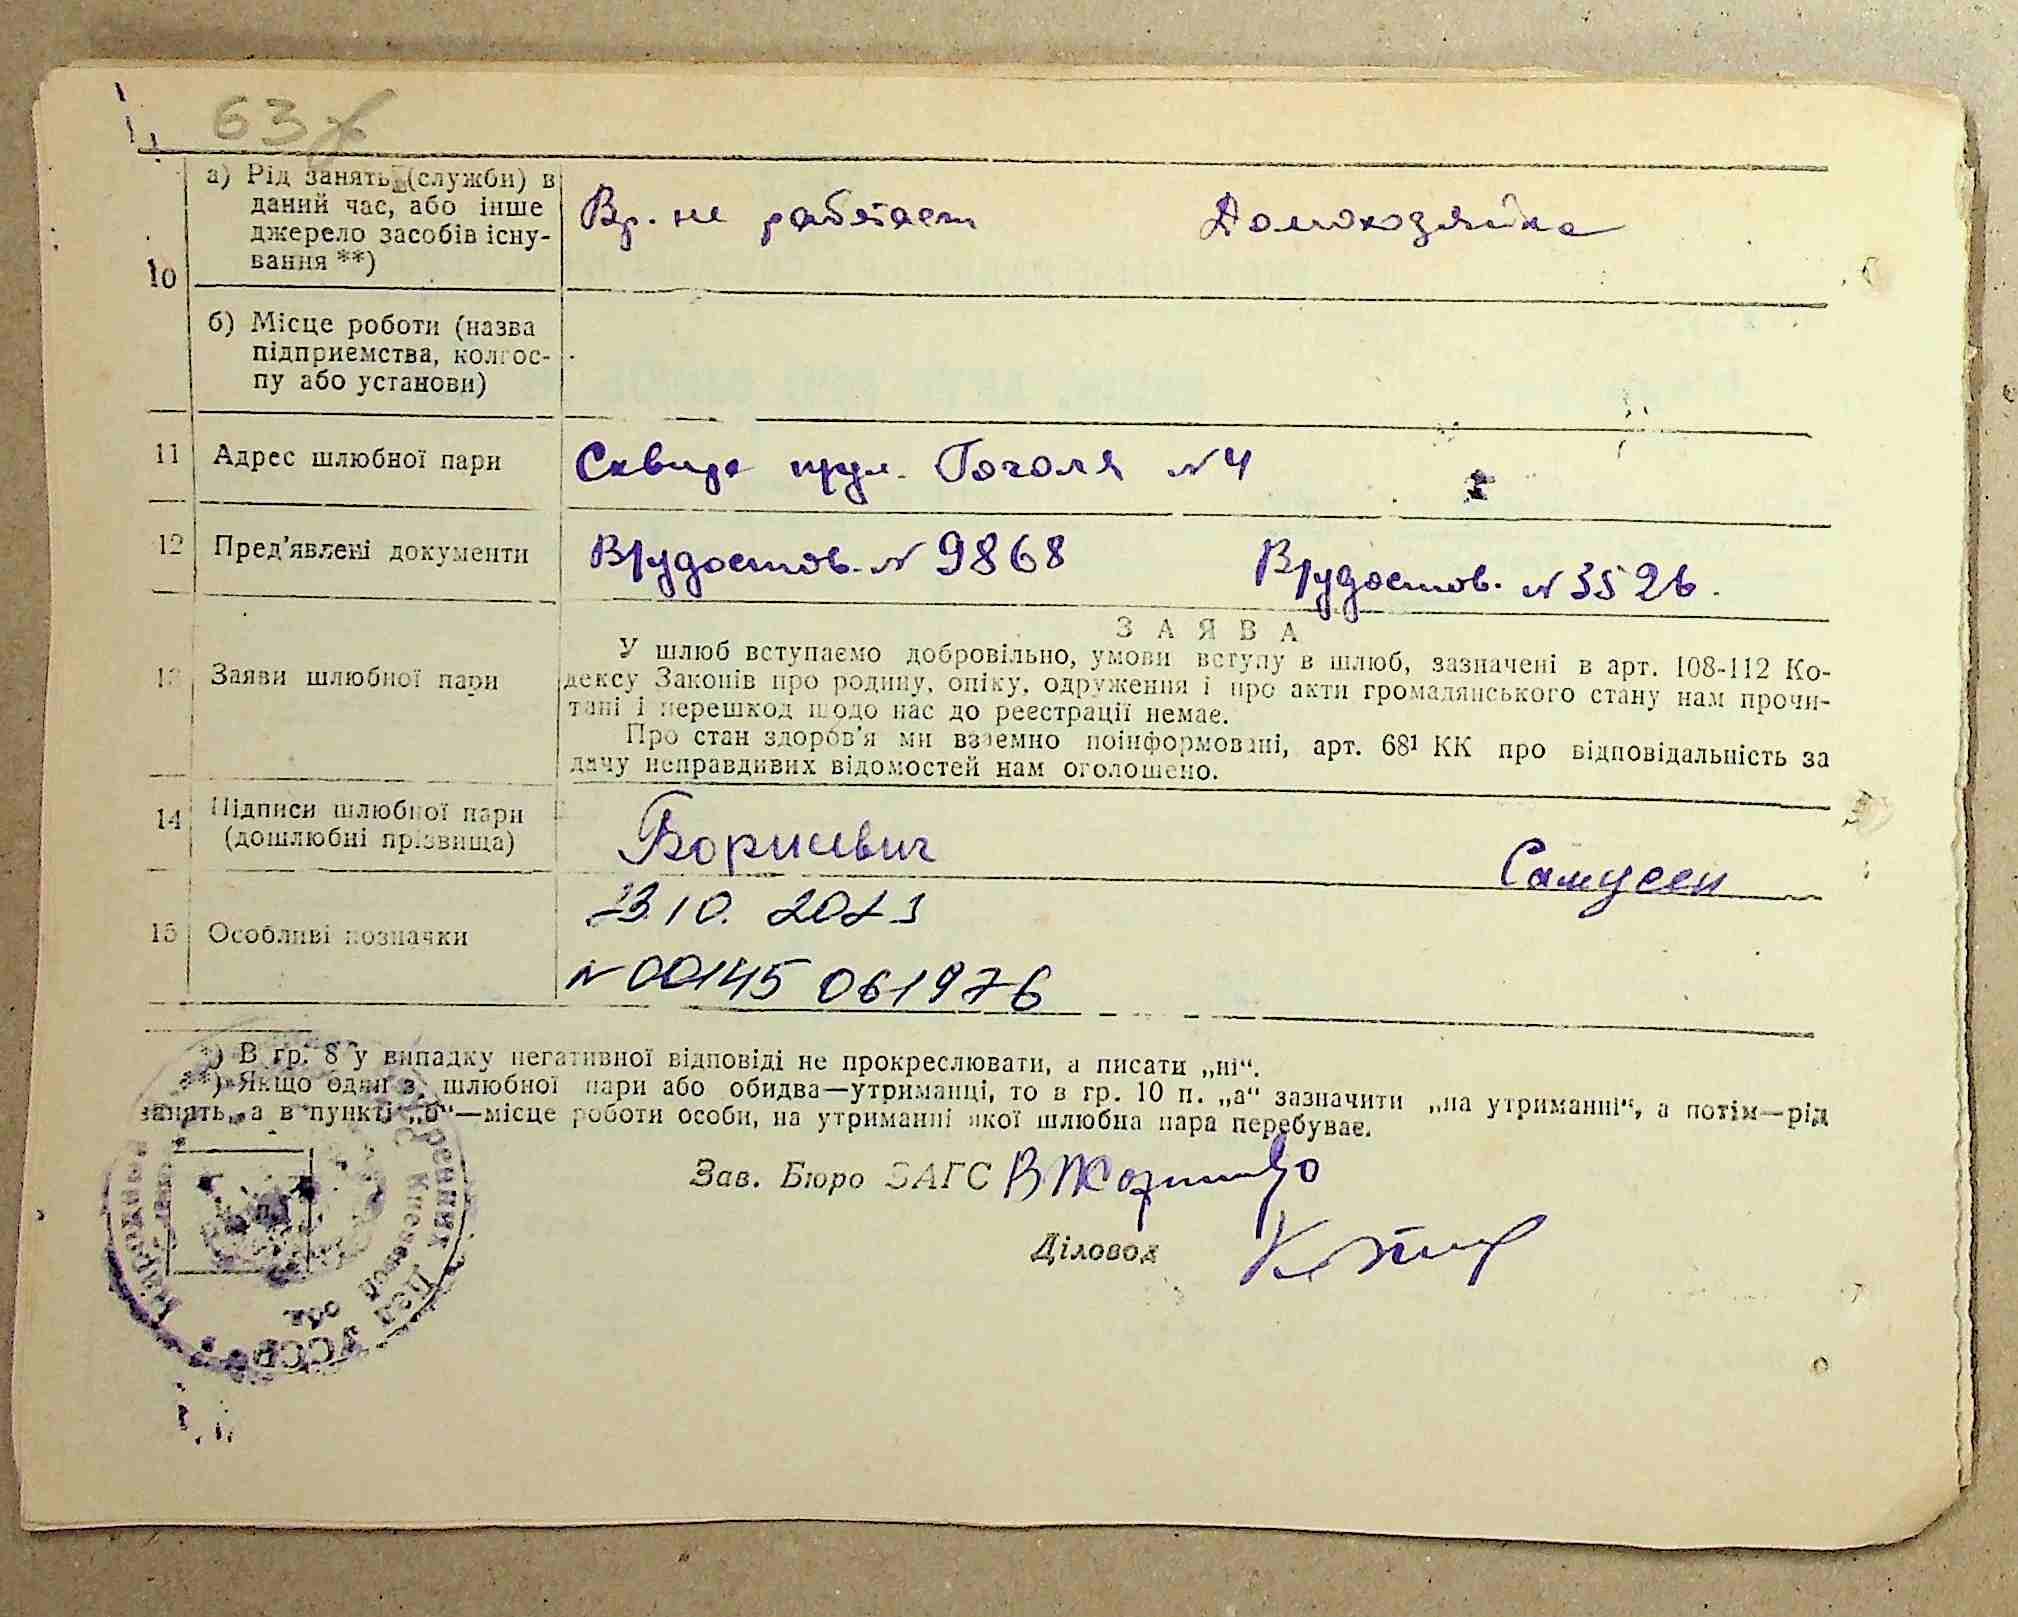 63
10
а) Рід занять (служби) в
даний час, або інше
джерело засобів існу-
вання **)
Вр. не работает
Домохозяйка
б) Місце роботи (назва
підприємства, колгос-
пу або установи)
11 Адрес шлюбної пари
Сквира Гоголя №4
12 Пред'явлені документи
Вр/удостов. № 9868
Вр/удостов. № 3526.
13 Заяви шлюбної пари
ЗАЯВА
У шлюб вступаємо добровільно, умови вступу в шлюб, зазначені в арт. 108-112 Ко-
дексу Законів про родину, опіку, одруження і про акти громадянського стану нам прочи-
тані і перешкод щодо нас до реєстрації немає.
Про стан здоров'я ми взаємно поінформовані, арт. 68¹ КК про відповідальність за
дачу неправдивих відомостей нам оголошено.
14 Підписи шлюбної пари
(дошлюбні прізвища)
Борисевич
15 Особливі позначки
23.10.2023
№ 00145061976
*) В гр. 8 у випадку негативної відповіді не прокреслювати, а писати „ні“.
**) Якщо один з шлюбної пари або обидва—утриманці, то в гр. 10 п. „а“ зазначити „на утриманні“, а потім—рід
занять, а в пункті „б“—місце роботи особи, на утриманні якої шлюбна пара перебуває.
Зав. Бюро ЗАГС
Діловод
УССР